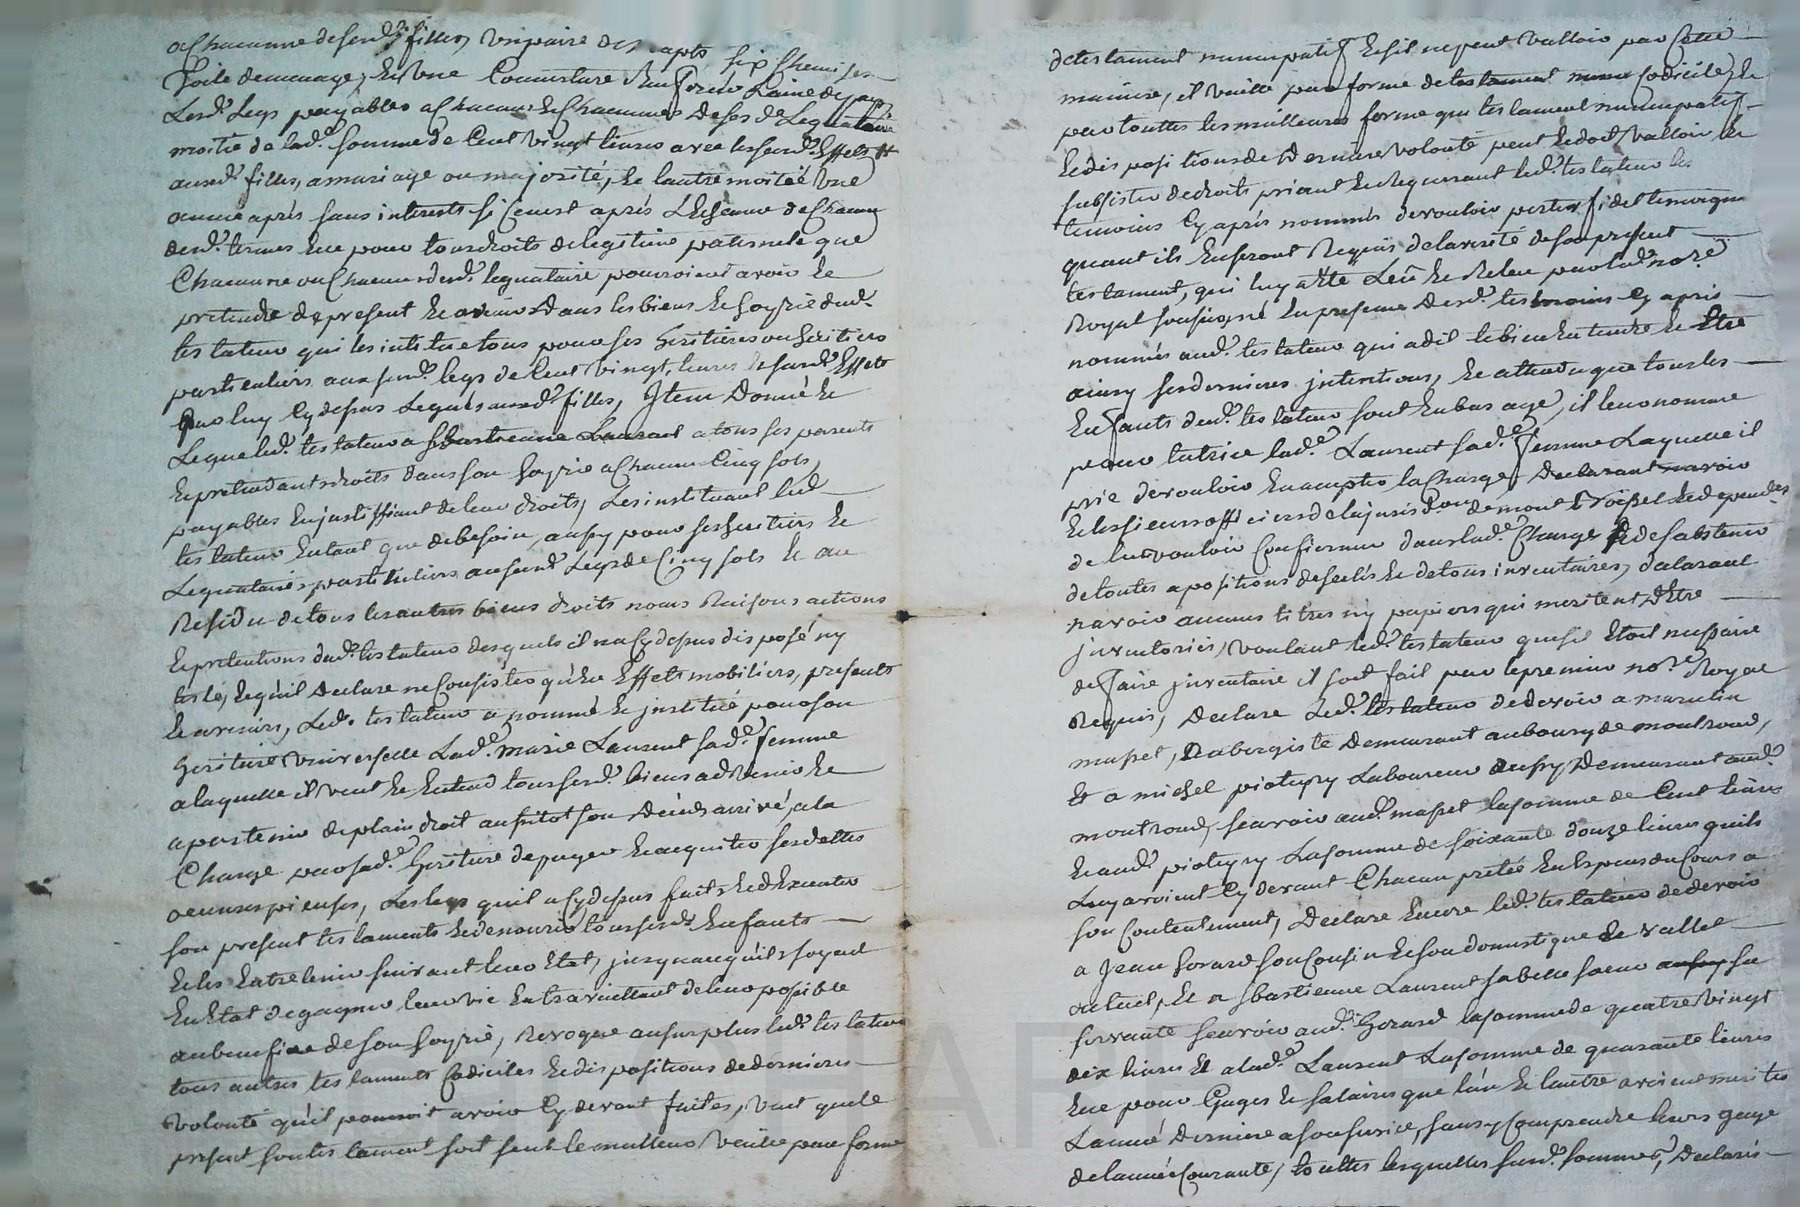 a Chacunne de sesd. filles, une paire de draps six chemises
Toile de menage, et une Couverture
Lesd. Legs payables a Chacun et Chacunnes de sesd. Legataire
moitié de lad.e somme de Cent vingt livres avec les susd. Effets
auxd. filles, a mariage ou majorité, et lautre moitiée une
année aprés sans interests si ce nest aprés L'Eschance de Chacun
desd. termes et ce pour tous droits de legitime paternelle que
Chacunne ou Chacun desd. legataire pourroient avoir et
pretendre de present et a venir Dans les biens et hoyrie dud.
testateur qui les institue tous pour ses héritieres ou héritiers
particuliers aux susd. legs de Cent vingt livres et susd. Effets
par luy Cy depus Legués auxd. filles, Item Donne et
Legue led. testateur a Sbastienne Laurant a tous ses parents
et pretendants droits dans son hoyrie a Chacun Cinq sols,
payables en justiffiant de leur droits, Les instituant led.
testateur En tant que de besoin, aussy pour ses heritiers et
Legataires particuliers au susd. Legs de Cinq sols et au
Residu de tous les autres biens droits noms Raisons actions
et pretentions dud. testateur desquels il na Cy depus disposé ny
testé, et qu'il Declare ne Consister qu'En Effets mobiliers, presents
et avenirs, Led. testateur a nommé et institué pour son
heritiere universelle Lad.e marie Laurent sad.e femme
a laquelle il veut et Entend tous sesd. biens advenir et
apartenir de plain droit aussitot son Décéds arrivé, a la
Charge pour sad.e heritiere de payer et acquiter ses dettes
oeuvres pieuses, Les legs qu'il a Cy depus faits et d'Executer
son present testaments et de nourir tous sesd. Enfants
et les Entretenir suivant leur Etat, jusqu'a ce qu'ils soyent
En Etat de gagner leur vie En travaillant de leur possible
au benefice de son hoyrie, Revoque au surplus led. testateur
tous autres testaments Codiciles et dispositions de dernieres
volonté qu'il pourroit avoir Cy devant faites, veut que le
present son testament soit seul le meilleur vaille par forme
de testament nuncupatif Et s'il ne peut valloir par Cette
maniere, il vaille par forme de Codicile, et
par touttes les meilleures forme que testament nuncupatif
et dispositions de Derniere volonté peut et doit valloir et
subsister de droits priant et Requerant led. testateur les
temoins Cy aprés nommés de vouloir porter fidel temoigna
quant ils En seront Requis de la verité de son present
testament, qui luy a Eté Leu et Releu par led. no.re
Royal soussigné En presence desd. temoins Cy apres
nommés aud. testateur qui a dit le bien Entendre et Etre
ainsy ses dernieres jntentions, Et attendu que tous les
Enfants dud. testateur sont En bas age, il leur nomme
pour tutrice lad.e Laurent sad.e femme Laquelle il
prie de vouloir En accepter la Charge,
Et les sieurs officiers de la jurisd.on de mont et dependces
de la vouloir Confirmer dans lad.e Charge et de sabstenir
de toutes apositions de scelés et de tous inventaires, declarant
navoir aucuns titres ny papiers qui meritent d'Etre
jnventoriés, voulant led. testateur que s'il Etoit necssaire
de faire jnventaire il soit fait par le premier no.re Royal
Requis, Declare Led. testateur de devoir a
aubergiste Demeurant au bourg de montrond,
Et a michel Laboureur aussy Demeurant aud.
montrond, scavoir aud. la somme de Cent livres
Et aud. La somme de soixante douze livres quils
Luy avoient Cy devant Chacun pretée En Especes du Cours a
son Contentement, Declare Encore led. testateur de devoir
a Jean Gerard son Cousin et son domestique de vallet
actuel, Et a Sbastienne Laurent sa belle soeur sa
servante scavoir aud. Gerard la somme de quatre vingt
dix livres Et a lad.e Laurent La somme de quarante livres
Et ce pour Gages et salaires que l'un et lautre avoient merités
Lannée Derniere a son service, sans y Comprendre leurs gage
de lannée Courante, touttes lesquelles susd. sommes, Declaré